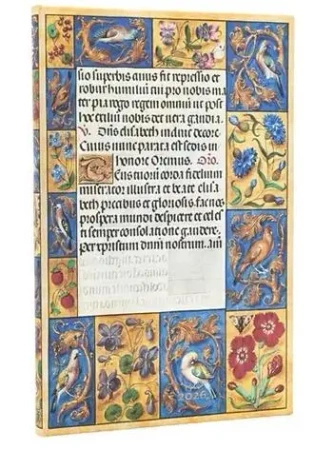 sio superbis anus fit repressio et
robur humiliū tu pro nobis ma
ter pia rogo regem omniū ut post
hoc exiliū nobis det vera gaudia.
V. Dn̄s elisabeth induit decore
Cuius nunc parata est sedis in
honore Oremus. Oro̅.
Entuorū corda fidelium
miserator illustra et beate elisa
beth precibus et gloriosis fac nos
prospera mundi despicere et celes
ti semper consolatione gaudere.
Per xpristum dnm nostrum. am̄
2026